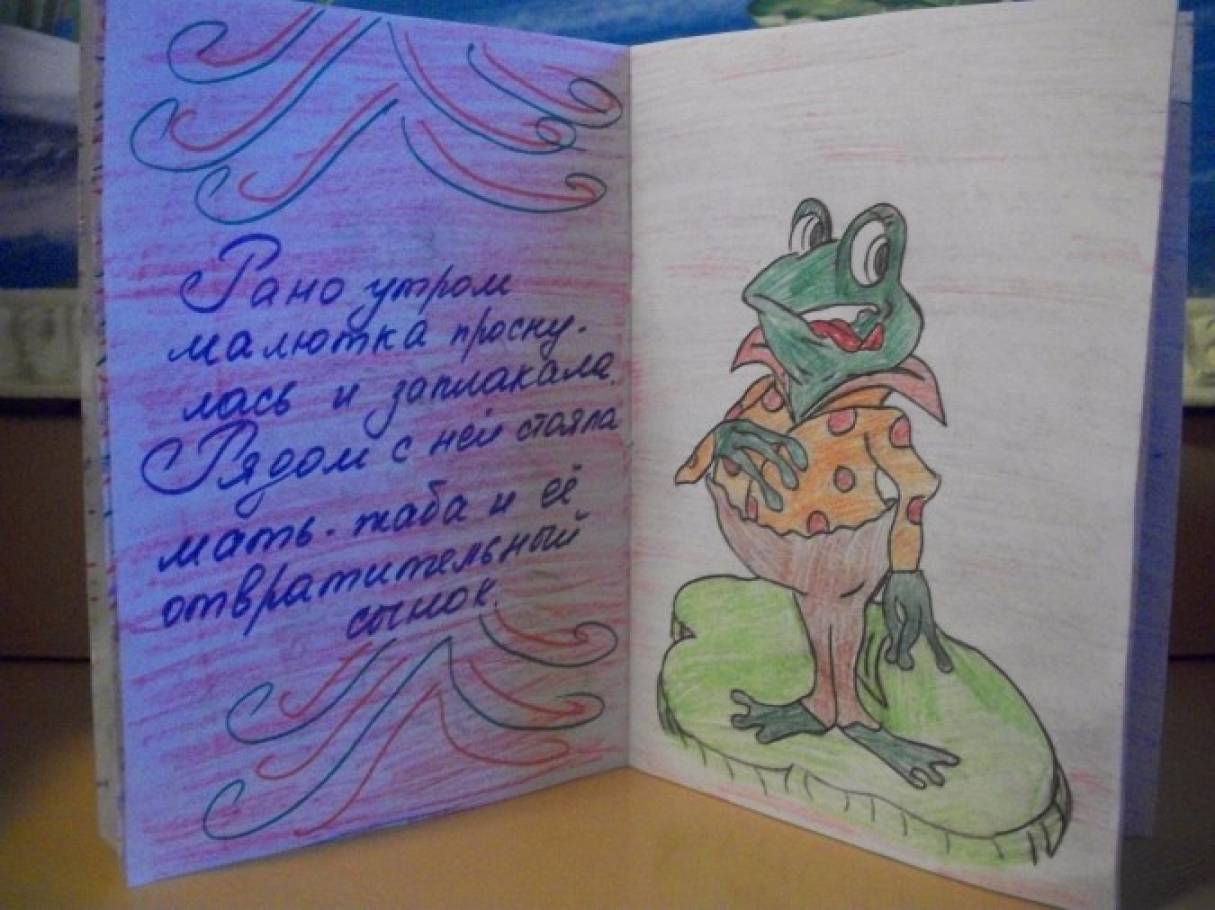 Рано утром
малютка просну-
лась и заплакала.
Рядом с ней стояла
мать-жаба и её
отвратительный
сынок.